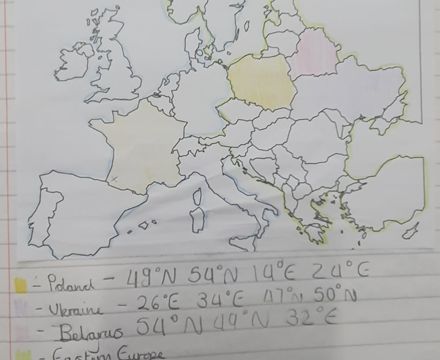 - Poland - 49°N 54°N 14°E 24°E
- Ukraine - 26°E 34°E 47°N 50°N
- Belarus 54°N 49°N 32°E
- Eastern Europe